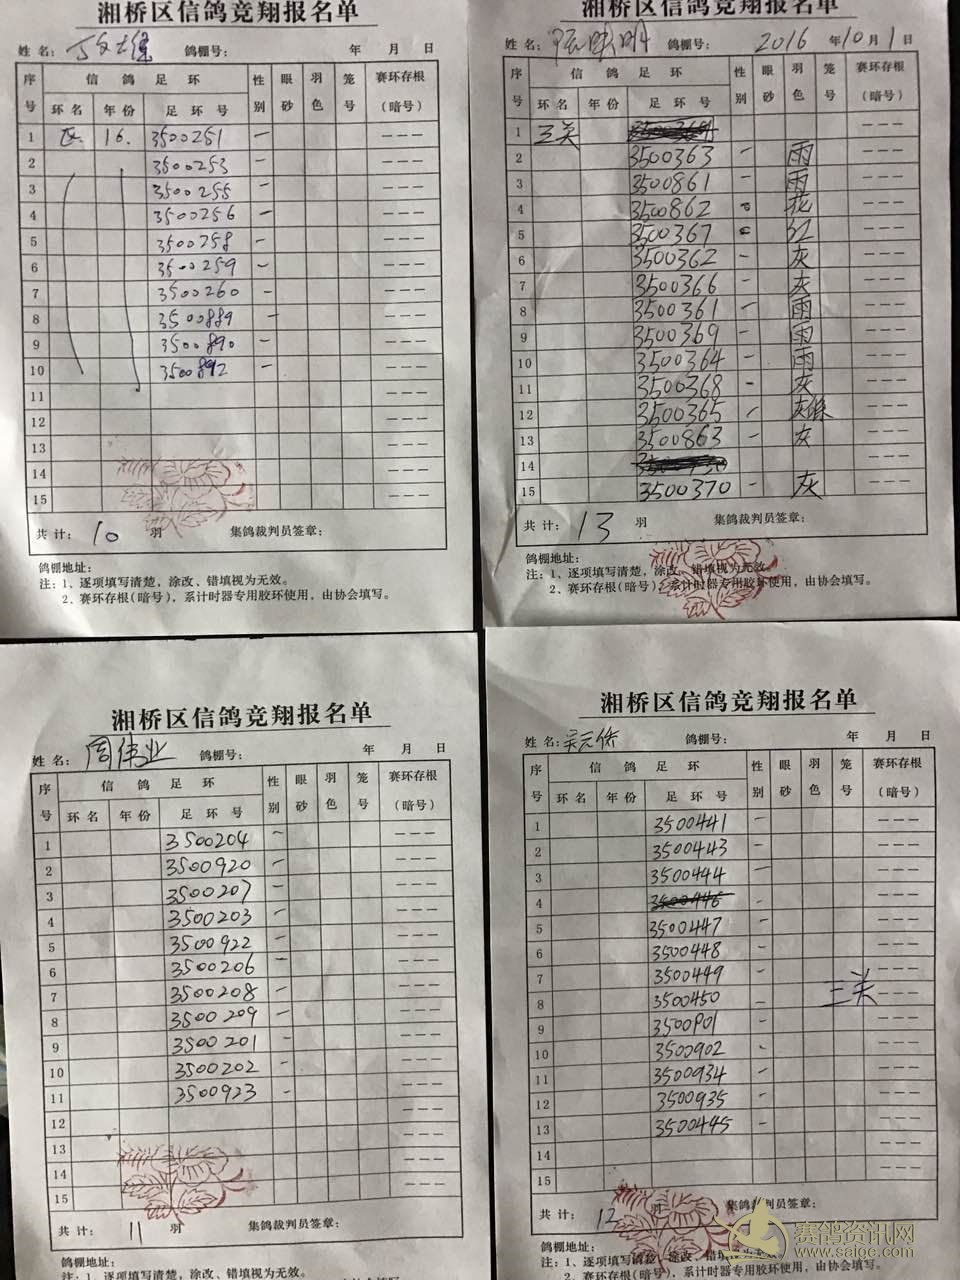 湘桥区信鸽竞翔报名单
姓 名： 鸽棚号： 年 月 日
序号 信 鸽 足 环 性别 眼砂 羽色 笼号 赛环存根（暗号）
环 名 年 份 足 环 号
1 16. 3500251 － －－－
2 3500253 － －－－
3 3500255 － －－－
4 3500256 － －－－
5 3500258 － －－－
6 3500259 － －－－
7 3500260 － －－－
8 3500889 － －－－
9 3500890 － －－－
10 3500892 － －－－
11 －－－
12 －－－
13 －－－
14 －－－
15 －－－
共 计： 10 羽 集鸽裁判员签章：
鸽棚地址：
注：1、逐项填写清楚，涂改、错填视为无效。
2、赛环存根（暗号），系计时器专用胶环使用，由协会填写。
湘桥区信鸽竞翔报名单
姓 名： 鸽棚号： 2016 年10月1日
序号 信 鸽 足 环 性别 眼砂 羽色 笼号 赛环存根（暗号）
环 名 年 份 足 环 号
1 三关 －－－
2 3500363 － 雨 －－－
3 3500861 － 雨 －－－
4 3500862 花 －－－
5 3500367 红 －－－
6 3500362 － 灰 －－－
7 3500366 － 灰 －－－
8 3500361 － 雨 －－－
9 3500369 － 雨 －－－
10 3500364 － 雨 －－－
11 3500368 － 灰 －－－
12 3500365 － 灰 －－－
13 3500863 － 灰 －－－
14 －－－
15 3500370 － 灰 －－－
共 计： 13 羽 集鸽裁判员签章：
鸽棚地址：
注：1、逐项填写清楚，涂改、错填视为无效。
2、赛环存根（暗号），系计时器专用胶环使用，由协会填写。
湘桥区信鸽竞翔报名单
姓 名： 周伟业 鸽棚号： 年 月 日
序号 信 鸽 足 环 性别 眼砂 羽色 笼号 赛环存根（暗号）
环 名 年 份 足 环 号
1 3500204 － －－－
2 3500920 － －－－
3 3500207 － －－－
4 3500203 － －－－
5 3500922 － －－－
6 3500206 － －－－
7 3500208 － －－－
8 3500209 － －－－
9 3500201 － －－－
10 3500202 － －－－
11 3500923 － －－－
12 －－－
13 －－－
14 －－－
15 －－－
共 计： 11 羽 集鸽裁判员签章：
鸽棚地址：
注：1、逐项填写清楚，涂改、错填视为无效。
湘桥区信鸽竞翔报名单
姓 名： 吴元侨 鸽棚号： 年 月 日
序号 信 鸽 足 环 性别 眼砂 羽色 笼号 赛环存根（暗号）
环 名 年 份 足 环 号
1 3500441 － －－－
2 3500443 － －－－
3 3500444 － －－－
4 3500446 － －－－
5 3500447 － －－－
6 3500448 － －－－
7 3500449 － －－－
8 3500450 － 三关 －－－
9 3500901 － －－－
10 3500902 － －－－
11 3500934 － －－－
12 3500935 － －－－
13 3500445 － －－－
14 －－－
15 －－－
共 计： 12 羽 集鸽裁判员签章：
鸽棚地址：
注：1、逐项填写清楚，涂改、错填视为无效。
2、赛环存根（暗号），系计时器专用胶环使用，由协会填写。
赛鸽资讯网
www.saigc.com